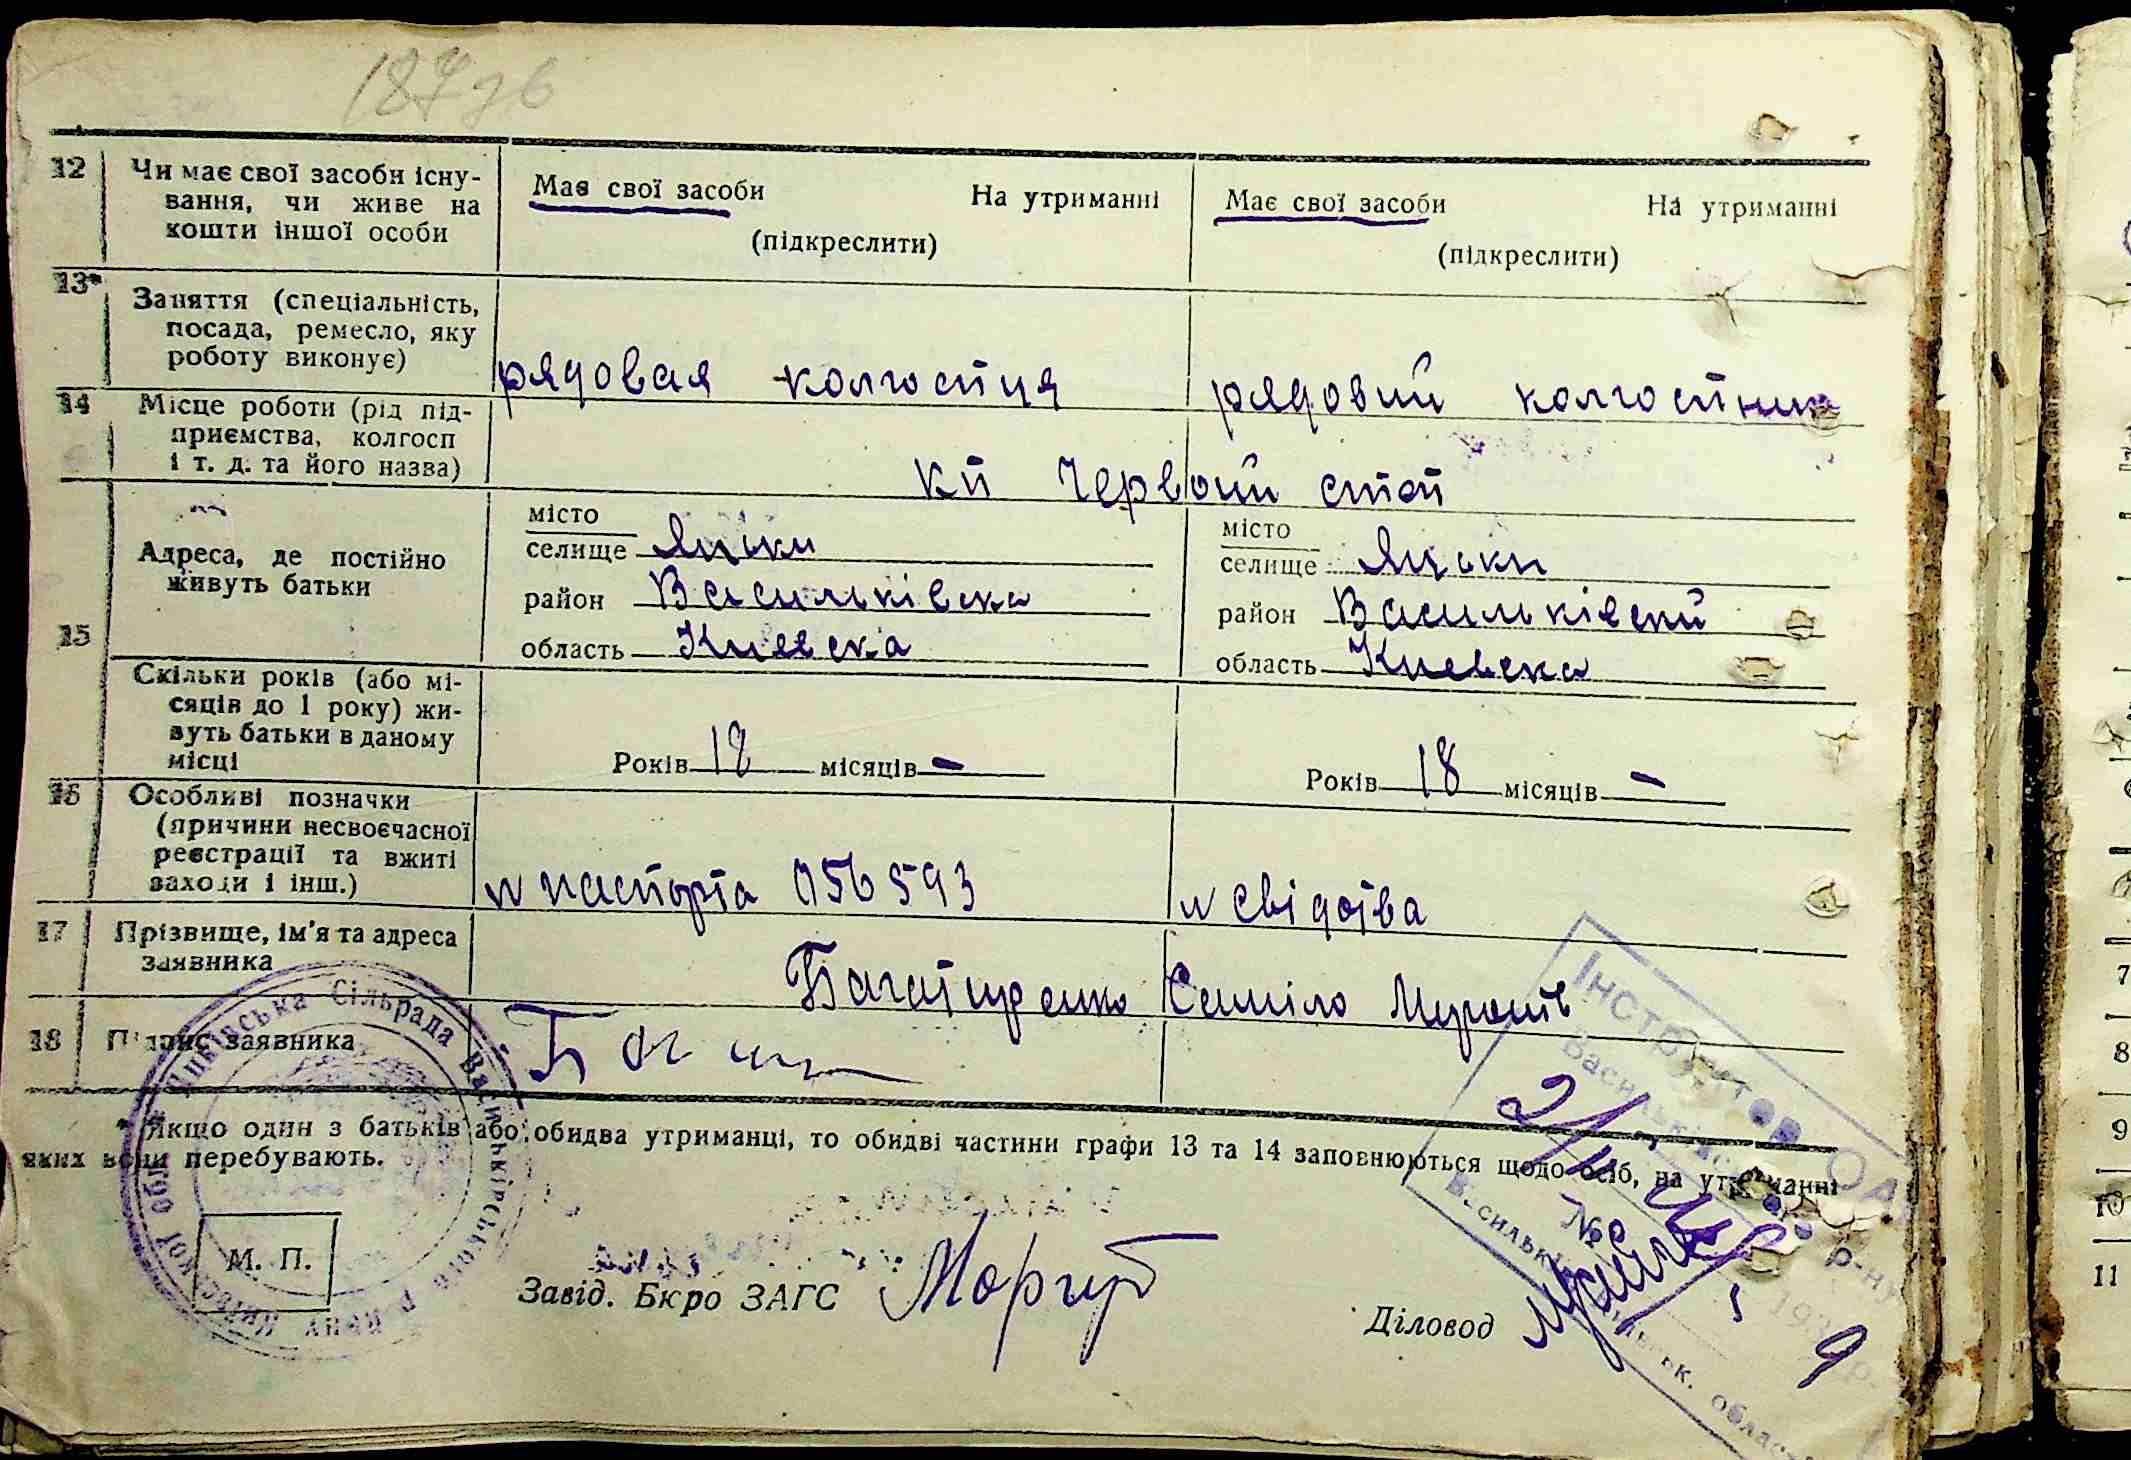 12 Чи має свої засоби існу-
вання, чи живе на
кошти іншої особи
Має свої засоби На утриманні
(підкреслити)
Має свої засоби На утриманні
(підкреслити)
13* Заняття (спеціальність,
посада, ремесло, яку
роботу виконує)
рядовая колгоспця
рядовий колгоспник
14 Місце роботи (рід під-
приємства, колгосп
і т. д. та його назва)
КП Червоний степ
15 Адреса, де постійно
живуть батьки
місто
селище Яцьки
район Васильківска
область Києвска
місто
селище Яцьки
район Васильківский
область Києвска
Скільки років (або мі-
сяців до 1 року) жи-
вуть батьки в даному
місці
Років 18 місяців –
Років 18 місяців –
16 Особливі позначки
(причини несвоєчасної
реєстрації та вжиті
заходи і інш.)
паспорта 056593
свідотва
17 Прізвище, ім'я та адреса
заявника
18 Підпис заявника
* Якщо один з батьків або обидва утриманці, то обидві частини графи 13 та 14 заповнюються щодо осіб, на утриманні
яких вони перебувають.
М. П.
Завід. Бюро ЗАГС
Діловод
Яцківська Сільрада Васильківського р-ну Київської обл.
Інструктор ОАГС
№
7
8
9
10
11